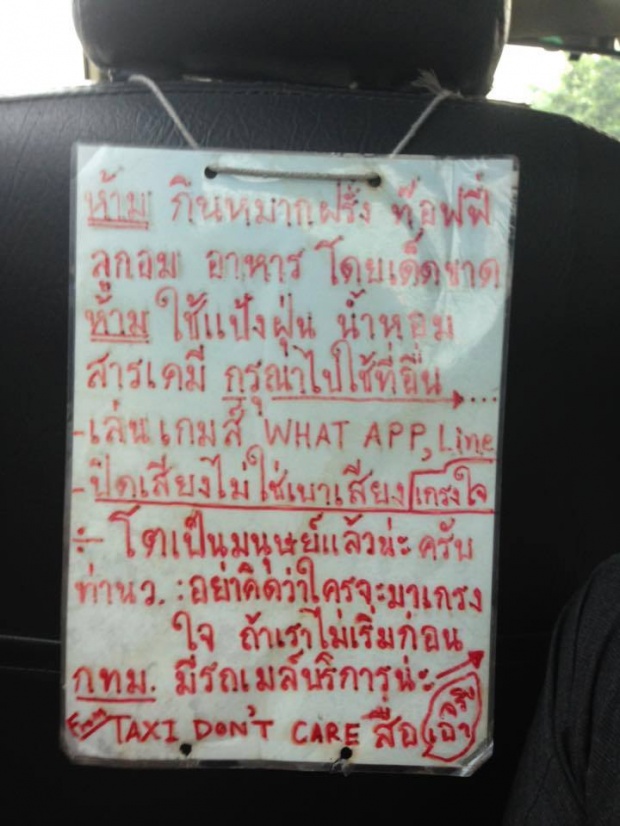 ห้าม กินหมากฝรั่ง ท๊อฟฟี่
ลูกอม อาหาร โดยเด็ดขาด
ห้าม ใช้แป้งฝุ่น น้ำหอม
สารเคมี กรุณาไปใช้ที่อื่น ...
-เล่นเกมส์ WHAT APP, Line
-ปิดเสียงไม่ใช่เบาเสียง เกรงใจ
÷ โตเป็นมนุษย์แล้วน่ะครับ
ท่านว. :อย่าคิดว่าใครจะมาเกรง
ใจ ถ้าเราไม่เริ่มก่อน
กทม. มีรถเมล์บริการน่ะ
TAXI DON'T CARE สื่อ